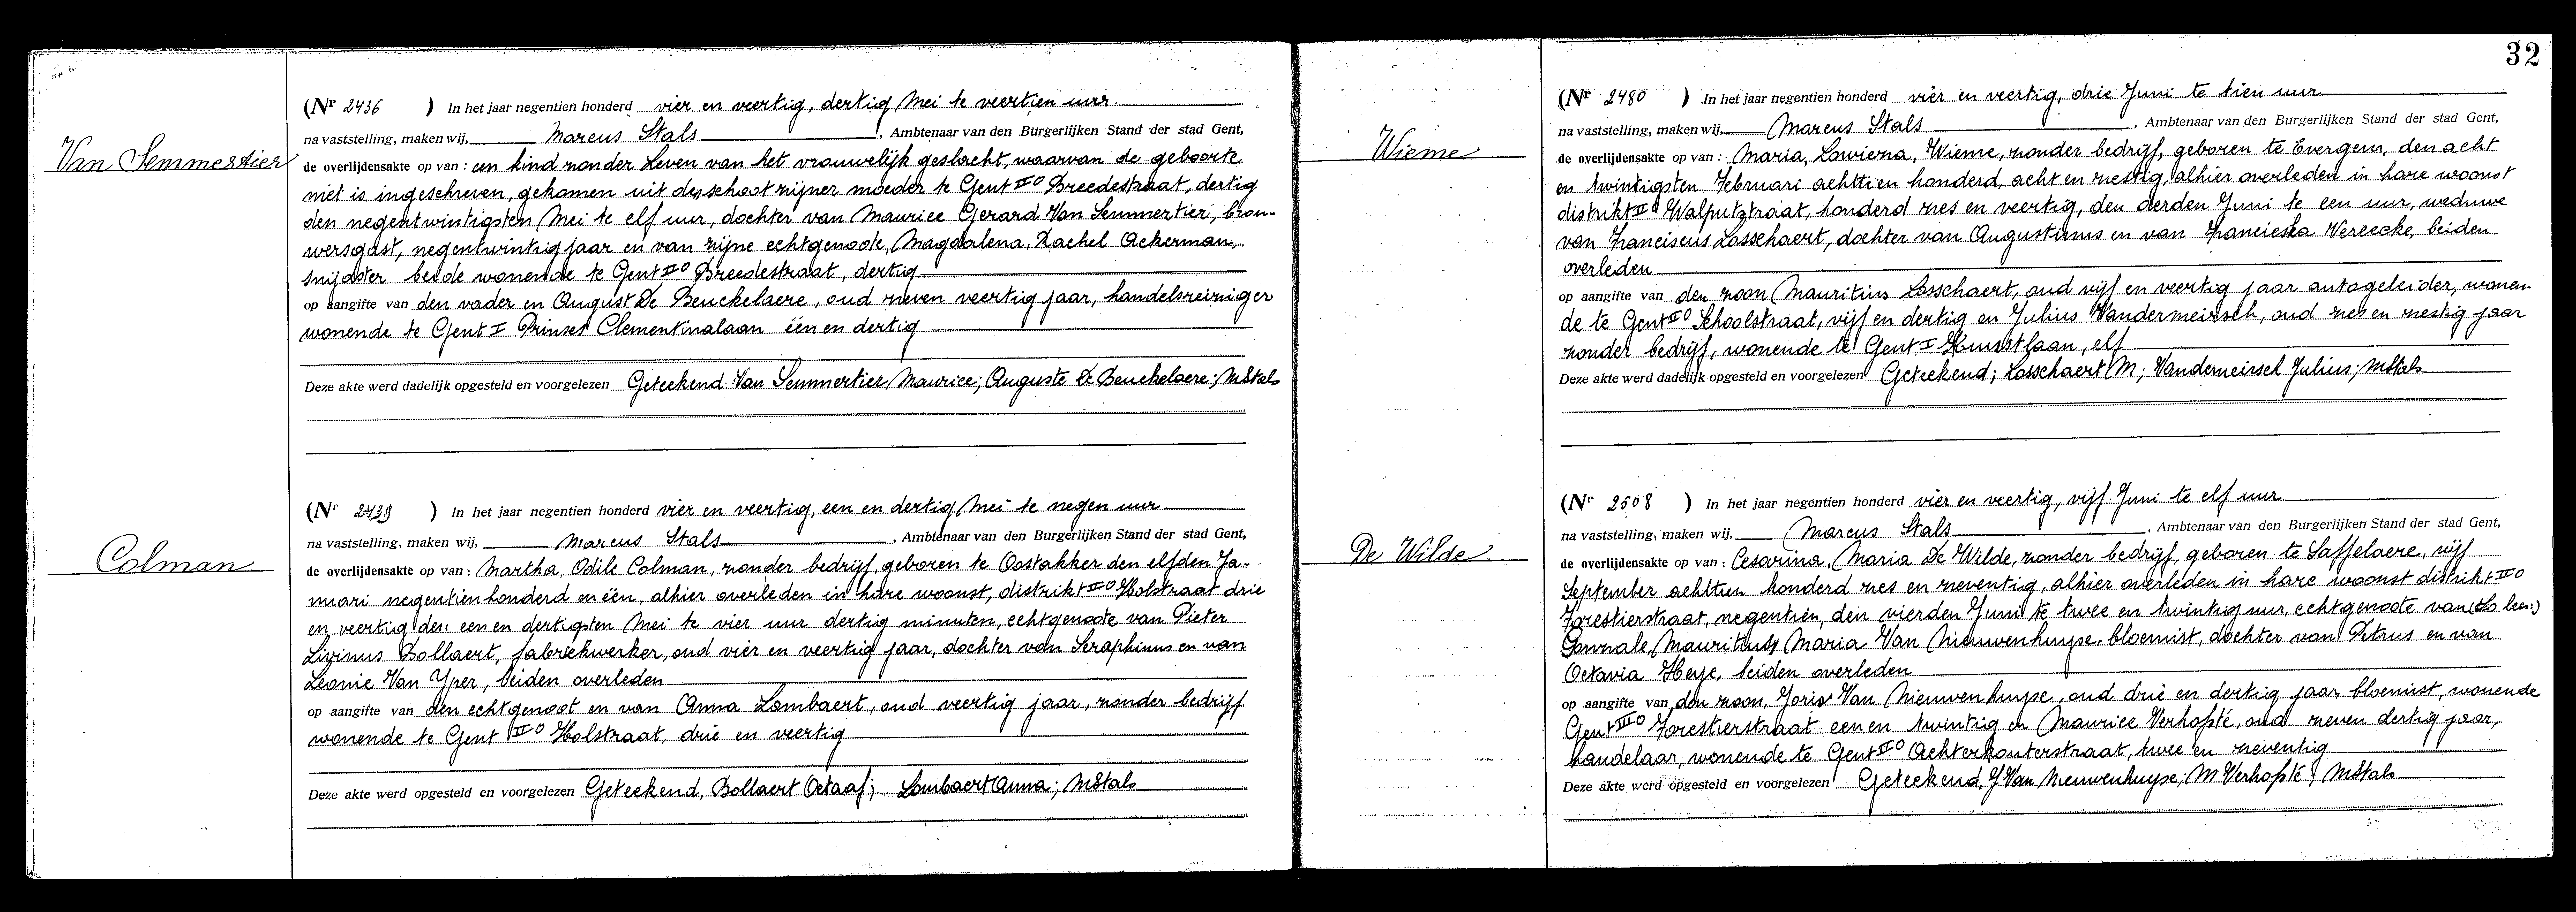 Van Semmertier
(Nr 2436 ) In het jaar negentien honderd vier en veertig, dertig Mei te veertien uur.
na vaststelling, maken wij, Marcus Stals, Ambtenaar van den Burgerlijken Stand der stad Gent,
de overlijdensakte op van : een kind zonder leven van het vrouwelijk geslacht, waarvan de geboorte
niet is ingeschreven, gekomen uit den schoot zijner moeder te Gent II° Breedestraat, dertig
den negentwintigsten Mei te elf uur, dochter van Maurice Gerard Van Semmertier, brou-
wersgast, negentwintig jaar en van zijne echtgenoote, Magdalena, Rachel Ackerman,
snijdster beide wonende te Gent II° Breedestraat, dertig
op aangifte van den vader en August De Beuckelaere, oud zeven veertig jaar, handelsreiziger
wonende te Gent I Prinses Clementinalaan één en dertig
Deze akte werd dadelijk opgesteld en voorgelezen Geteekend: Van Semmertier Maurice; Auguste De Beuckelaere; MStals
Colman
(Nr 2439 ) In het jaar negentien honderd vier en veertig, een en dertig Mei te negen uur
na vaststelling, maken wij, Marcus Stals, Ambtenaar van den Burgerlijken Stand der stad Gent,
de overlijdensakte op van : Martha, Odile Colman, zonder bedrijf, geboren te Oostakker den elfden Ja-
nuari negentien honderd en één, alhier overleden in hare woonst, distrikt II° Holstraat drie
en veertig den een en dertigsten Mei te vier uur dertig minuten, echtgenoote van Pieter
Livinus Bollaert, fabriekwerker, oud vier en veertig jaar, dochter van Seraphinus en van
Leonie Van Yper, beiden overleden
op aangifte van den echtgenoot en van Anna Lombaert, oud veertig jaar, zonder bedrijf
wonende te Gent II° Holstraat, drie en veertig
Deze akte werd opgesteld en voorgelezen Geteekend, Bollaert Octaaf; Lombaert Anna; MStals
32
Wieme
(Nr 2480 ) In het jaar negentien honderd vier en veertig, drie Juni te tien uur
na vaststelling, maken wij, Marcus Stals, Ambtenaar van den Burgerlijken Stand der stad Gent,
de overlijdensakte op van : Maria, Lowiena, Wieme, zonder bedrijf, geboren te Evergem, den acht
en twintigsten Februari achttien honderd, acht en zestig, alhier overleden in hare woonst
distrikt II° Walputstraat, honderd zes en veertig, den derden Juni te een uur, weduwe
van Franciscus Losschaert, dochter van Augustinus en van Franciska Vereecke, beiden
overleden
op aangifte van den zoon Mauritius Losschaert, oud vijf en veertig jaar autogeleider, wonen-
de te Gent II° Schoolstraat, vijf en dertig en Julius Vandermeirsch, oud zes en zestig jaar
zonder bedrijf, wonende te Gent I Kunstlaan, elf
Deze akte werd dadelijk opgesteld en voorgelezen Geteekend; Losschaert M; Vandemeirsel Julius; MStals
De Wilde
(Nr 2508 ) In het jaar negentien honderd vier en veertig, vijf Juni te elf uur
na vaststelling, maken wij, Marcus Stals, Ambtenaar van den Burgerlijken Stand der stad Gent,
de overlijdensakte op van : Cesarina, Maria De Wilde, zonder bedrijf, geboren te Saffelaere, vijf
September achttien honderd zes en zeventig, alhier overleden in hare woonst distrikt II°
Forestierstraat, negentien, den vierden Juni te twee en twintig uur, echtgenoote van
Mauritius Maria Van Nieuwenhuyse, bloemist, dochter van Petrus en van
Octavia Heye, beiden overleden
op aangifte van den zoon, Joris Van Nieuwenhuyse, oud drie en dertig jaar, bloemist, wonende
Gent III° Forestierstraat een en twintig en Maurice Verhofsté, oud zeven dertig jaar,
handelaar, wonende te Gent II° Achterkouterstraat, twee en zeventig
Deze akte werd opgesteld en voorgelezen Geteekend, J Van Nieuwenhuyse; M Verhofsté; MStals